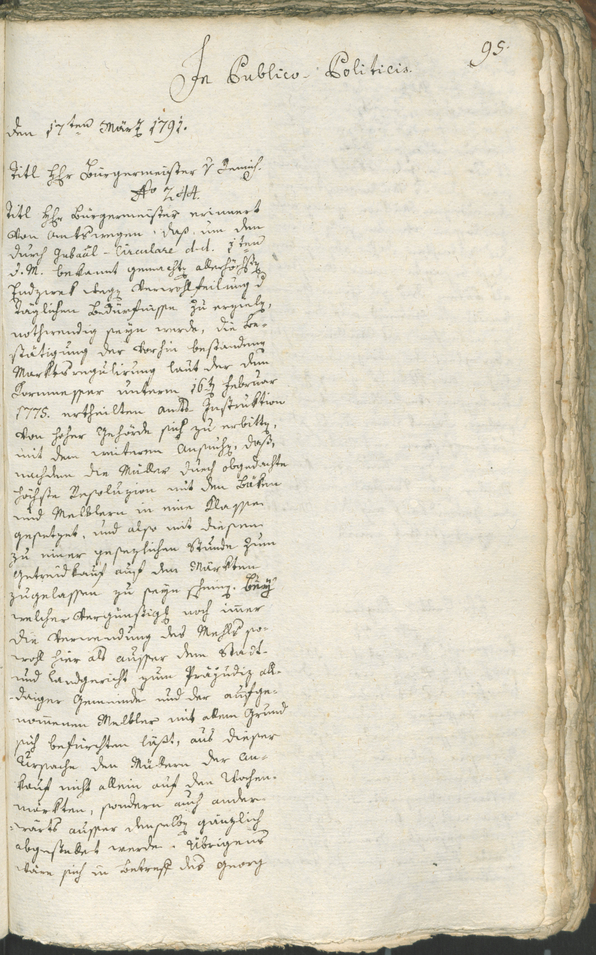 95.
In Publico-Politicis.
den 17ten März 1791.
Titl. Hr. Bürgermeister
No 244.
Titl. Hr. Bürgermeister erinnert
von Amtswegen, daß, um den
durch Gubaal-Circulare d.d. 1ten
d. M. bekannt gemachten allerhöchsten
Endzwek wegen Verwohlfeilung d
täglichen Bedürfnisse zu erzielen,
nothwendig seyn werde, die Be-
stätigung der vorhin bestandenen
Marktsregulirung laut der den
Kornmesser unterm 16ten Februar
1775. ertheilten Amts Instruktion
von hoher Behörde sich zu erbitten,
mit dem weitern Ansuchen, daß,
nachdem die Müller durch obgedachte
höchste Resoluzion mit den Bäken
und Melblern in eine Klasse
gesetzet, und also mit diesen
zu einer gesezlichen Stunde zum
Getreidkauf auf den Märkten
zugelassen zu seyn scheinen. bey
welcher Vergünstigung noch immer
die Verwendung des Mehls so-
wohl hier als ausser dem Stadt-
und Landgericht zum Präjudiz all-
daiger Gemeinde und der aufge-
nommenen Melbler mit allem Grund
sich befürchten läßt, aus dieser
Ursache den Müllern der An-
kauf nicht allein auf den Wochen-
märkten, sondern auch ander-
wärts ausser denselben gänzlich
abgestellt werde. Übrigens
wäre sich in Betreff des Georg